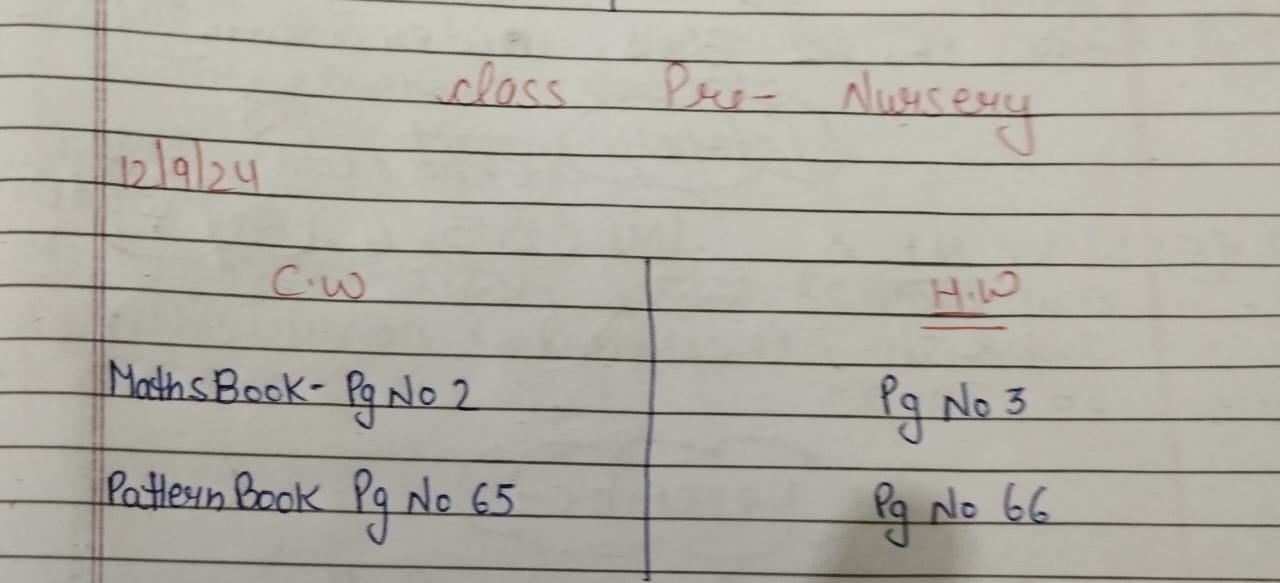 Class Pre- Nursery
12/9/24
C.W H.W
Maths Book- Pg No 2 Pg No 3
Pattern Book Pg No 65 Pg No 66